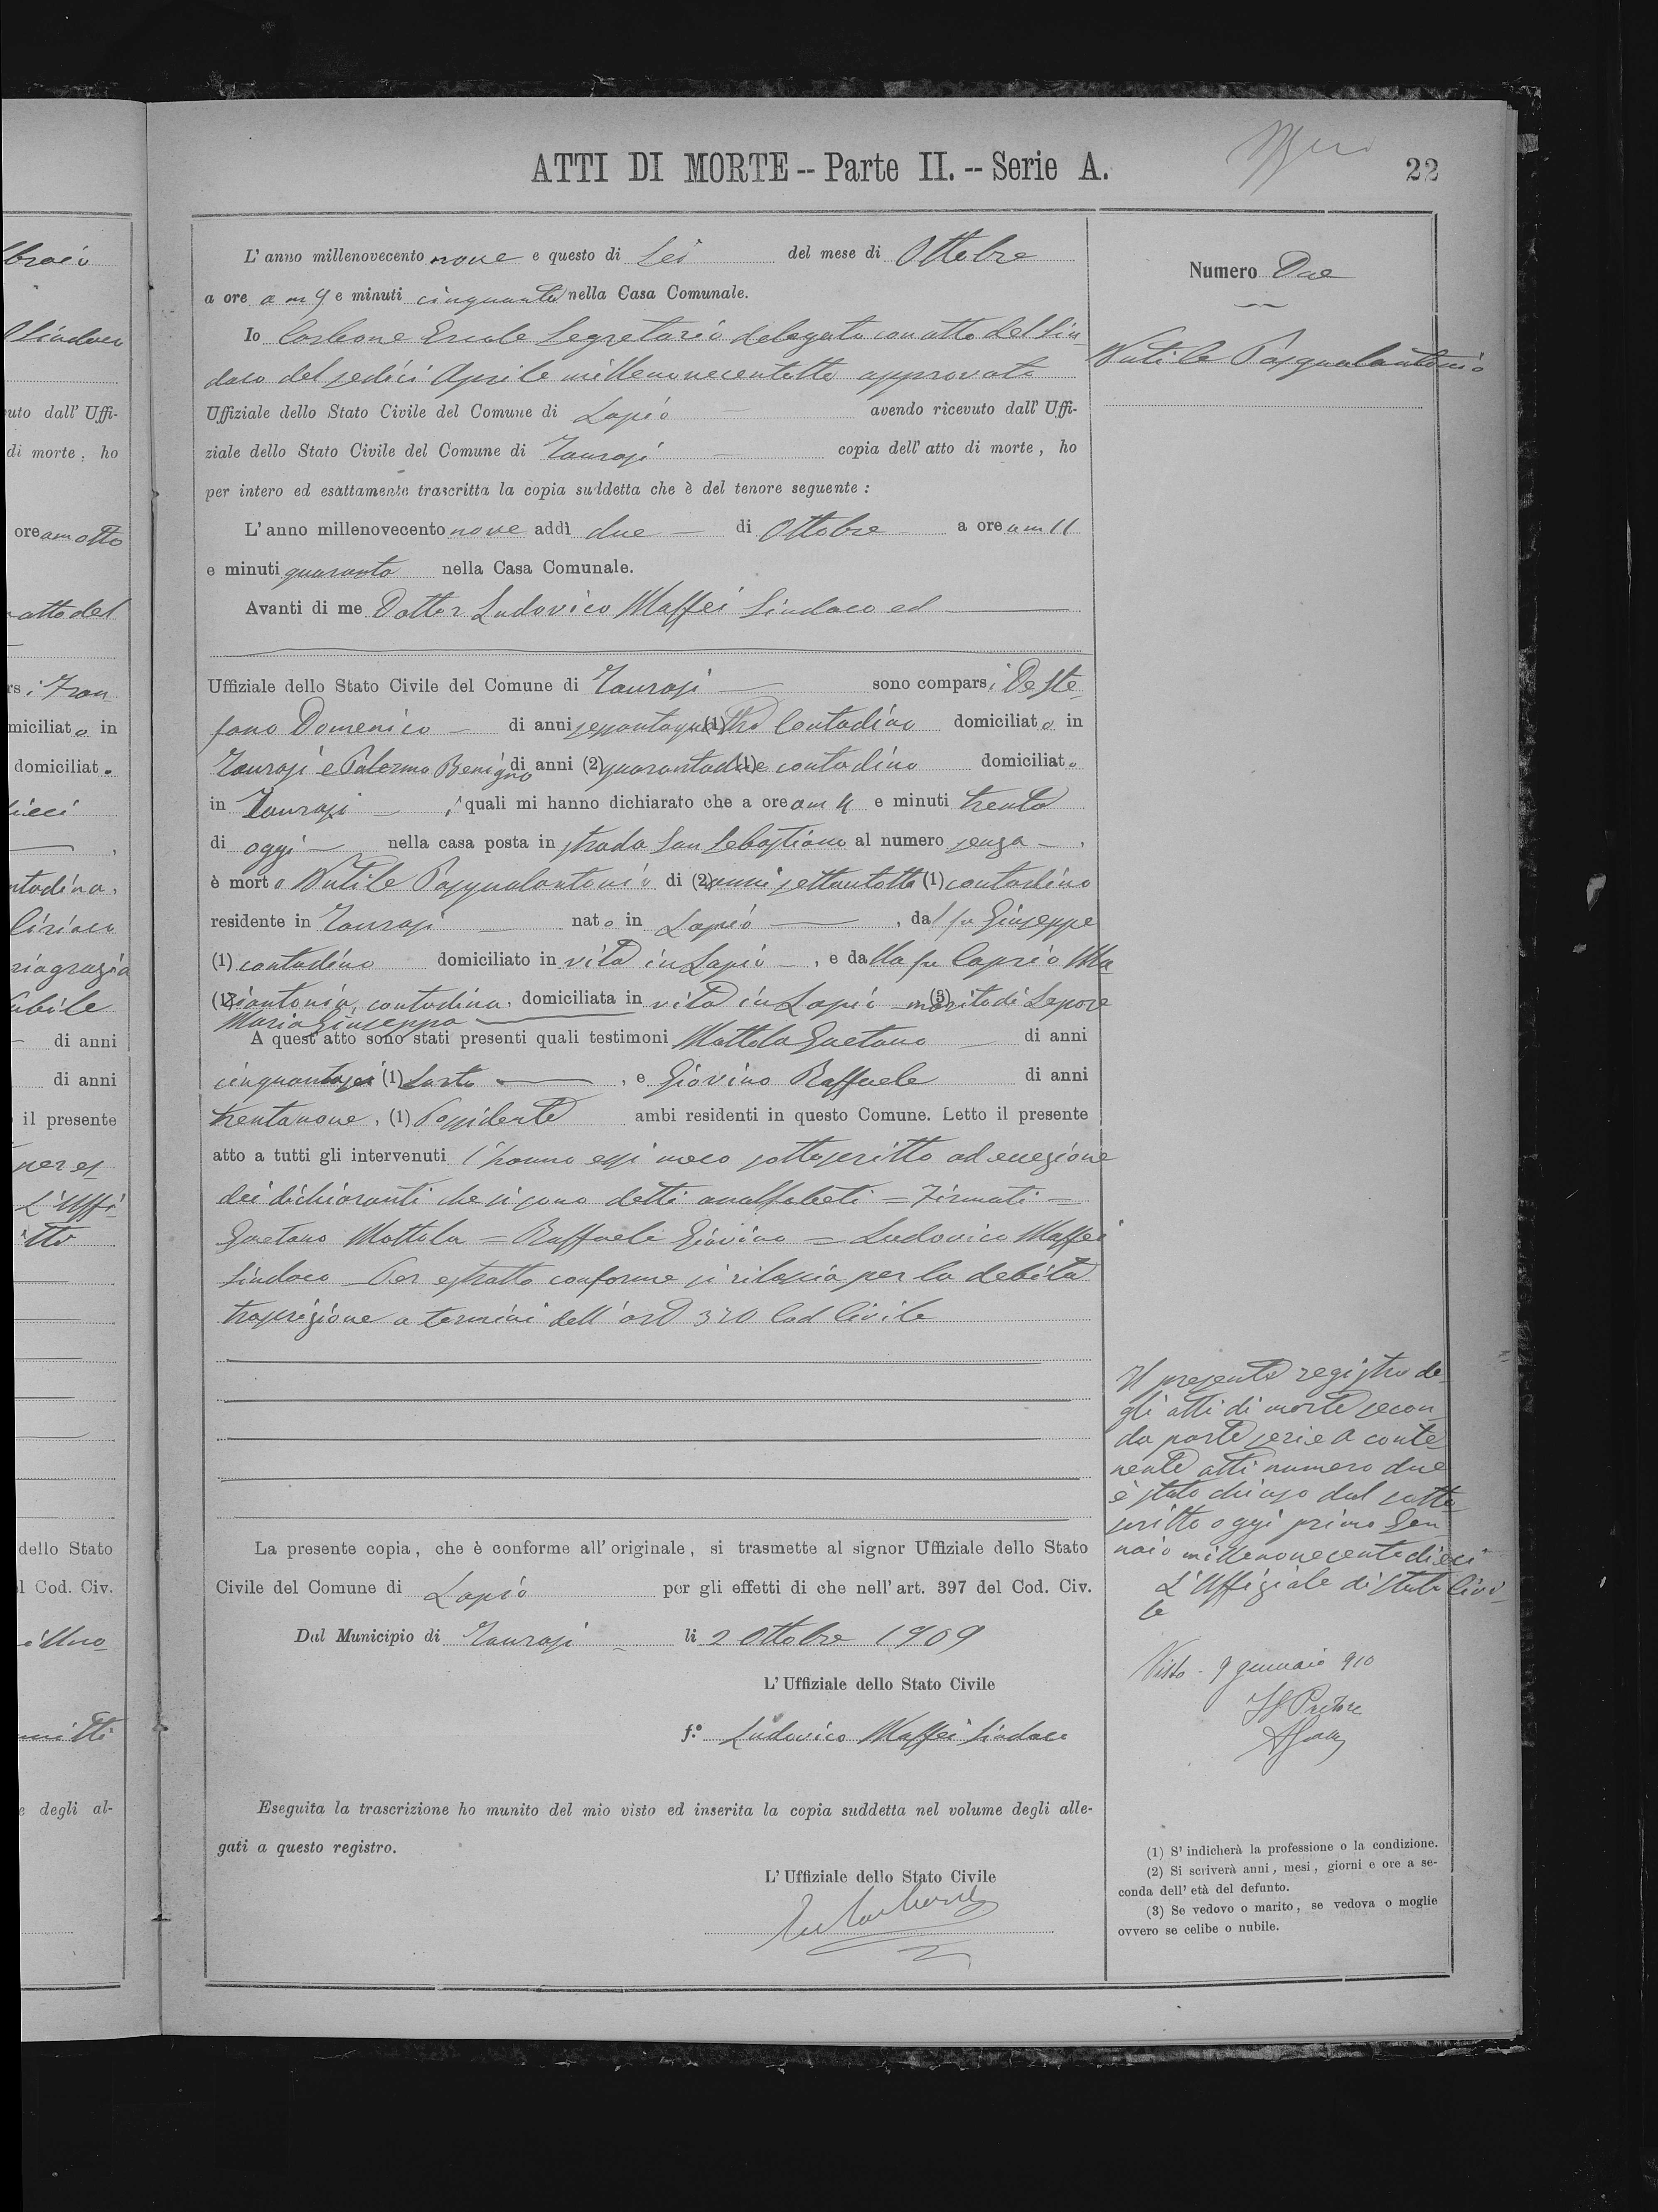 ATTI DI MORTE -- Parte II. -- Serie A.
22
L' anno millenovecento nove e questo dì Sei del mese di Ottobre
a ore am 9 e minuti cinquanta nella Casa Comunale.
Io Carbone Ercole Segretario delegato con atto del Sin-
daco del sedici Aprile millenovecentotto approvato
Uffiziale dello Stato Civile del Comune di Lapio avendo ricevuto dall' Uffi-
ziale dello Stato Civile del Comune di Taurasi copia dell' atto di morte, ho
per intero ed esattamente trascritta la copia suddetta che è del tenore seguente :
L' anno millenovecento nove addì due di Ottobre a ore am 11
e minuti quaranta nella Casa Comunale.
Avanti di me Dottor Ludovico Maffei Sindaco ed
Uffiziale dello Stato Civile del Comune di Taurasi sono comparsi De Ste-
fano Domenico di anni sessantaquattro (1) Contadino domiciliato in
Taurasi e Palermo Benigno di anni (2) quarantadue (1) contadino domiciliato
in Taurasi i quali mi hanno dichiarato che a ore am 4 e minuti trenta
di oggi nella casa posta in strada San Sebastiano al numero senza ,
è morto Nutile Pasqualantonio di (2) anni settantotto (1) contadino
residente in Taurasi nato in Lapio , dal fu Giuseppe
(1) contadino domiciliato in vita in Lapio , e dalla fu Caprio Ma
(1) riantonia, contadina, domiciliata in vita in Lapio (3) marito di Lepore
Maria Giuseppa
A quest' atto sono stati presenti quali testimoni Mottola Gaetano di anni
cinquantasei (1) Sarto , e Giovino Raffaele di anni
trentanove , (1) Possidente ambi residenti in questo Comune. Letto il presente
atto a tutti gli intervenuti l'hanno essi meco sottoscritto ad eccezione
dei dichiaranti che si sono detti analfabeti = Firmati =
Gaetano Mottola = Raffaele Giovino = Ludovico Maffei
Sindaco Per estratto conforme si rilascia per la debita
trascrizione a termini dell' art 370 Cod Civile
La presente copia, che è conforme all' originale, si trasmette al signor Uffiziale dello Stato
Civile del Comune di Lapio per gli effetti di che nell' art. 397 del Cod. Civ.
Dal Municipio di Taurasi li 2 Ottobre 1909
L' Uffiziale dello Stato Civile
f.° Ludovico Maffei Sindaco
Eseguita la trascrizione ho munito del mio visto ed inserita la copia suddetta nel volume degli alle-
gati a questo registro.
L' Uffiziale dello Stato Civile
Numero Due
Nutile Pasqualantonio
Il presente registro de-
gli atti di morte secon-
da parte serie A conte-
nente atti numero due
è stato chiuso dal sotto-
scritto oggi primo Gen-
naio millenovecentodieci
L' Uffiziale di Stato Civi-
le
Visto - 9 gennaio 910
Il Pretore
(1) S' indicherà la professione o la condizione.
(2) Si scriverà anni, mesi, giorni e ore a se-
conda dell' età del defunto.
(3) Se vedovo o marito, se vedova o moglie
ovvero se celibe o nubile.